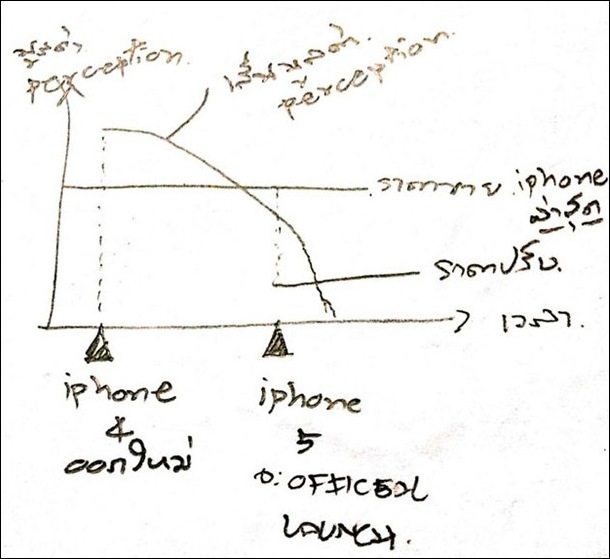 มูลค่า
perception
เส้นมูลค่า
perception
ราคาขาย iphone
ล่าสุด
ราคาปรับ
เวลา
iphone
4
ออกใหม่
iphone
5
LAUNCH.